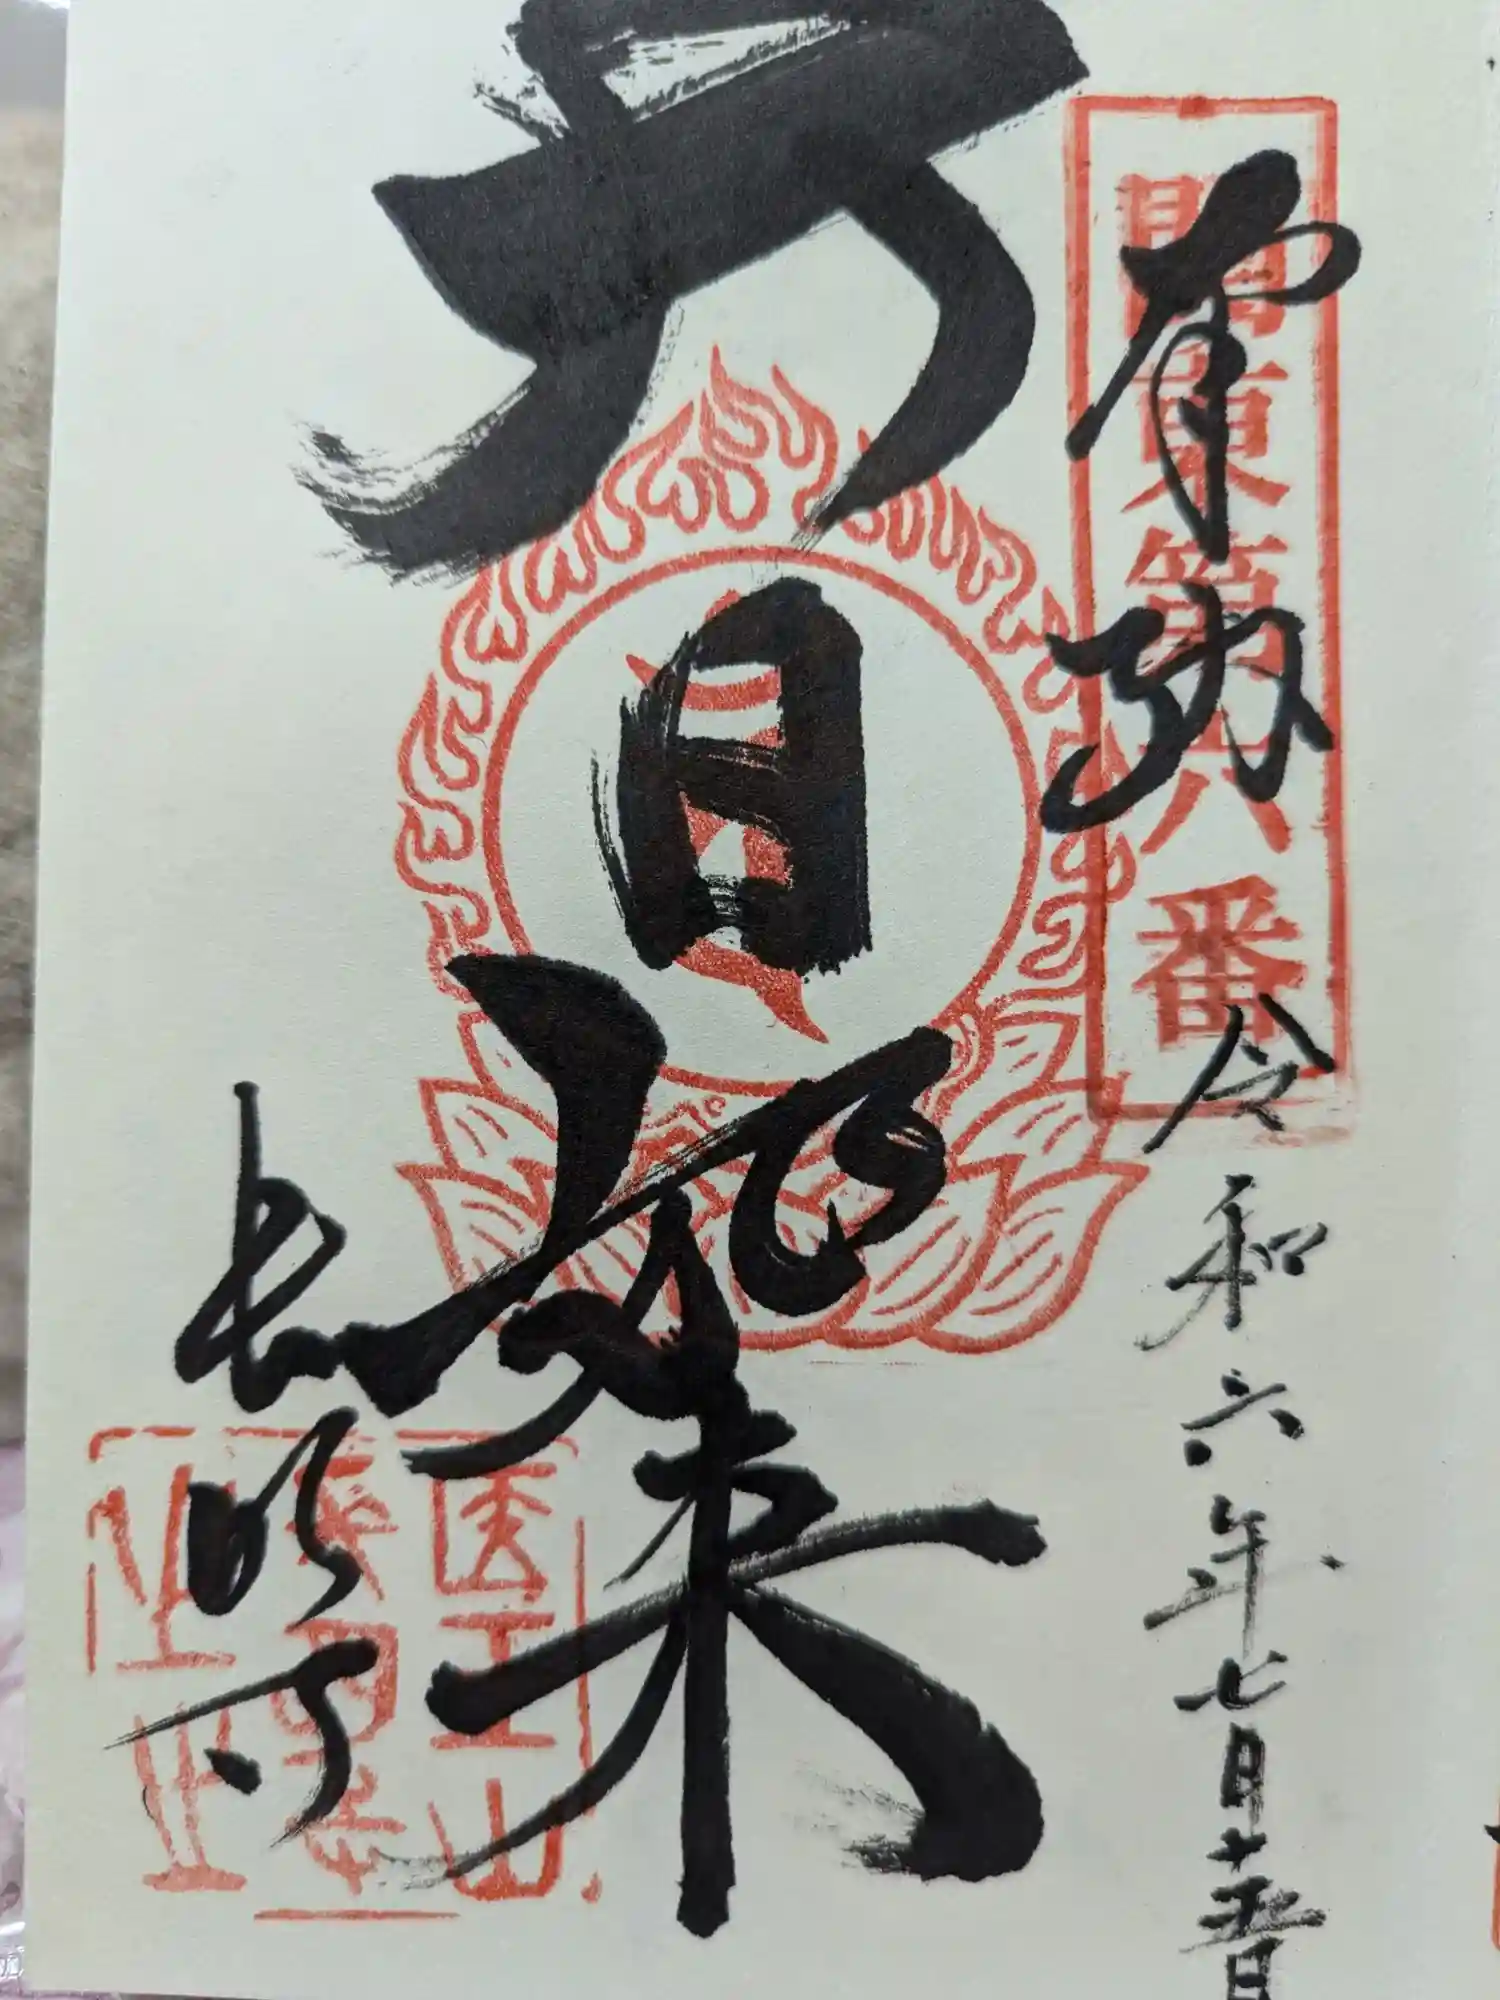 奉納
関東第六番
令和六年七月十
大日如来
長明寺
医王山